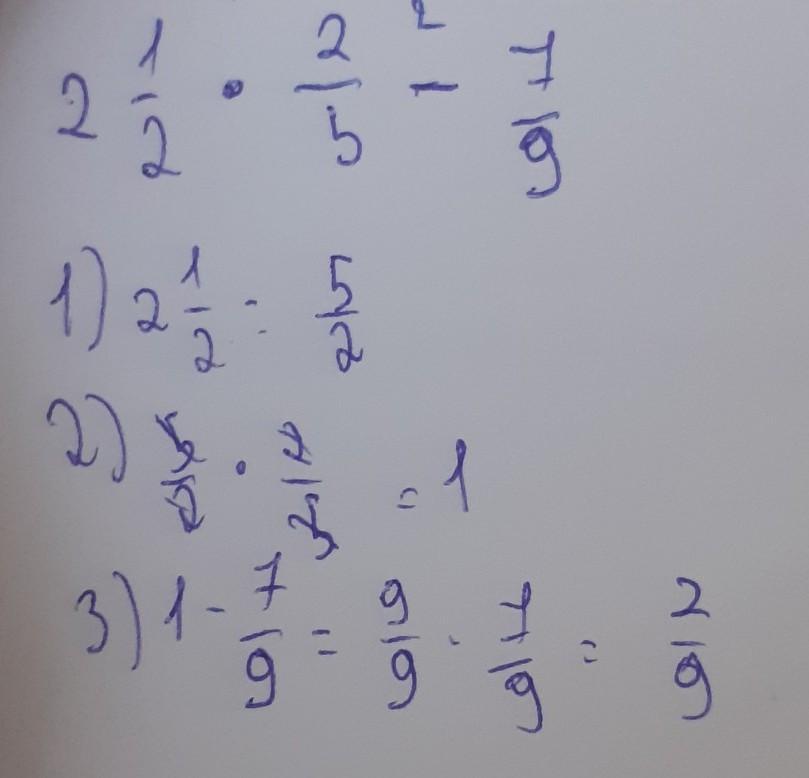 2 1/2 · 2/5 - 7/9
1) 2 1/2 = 5/2
2) 5/2 · 2/5 = 1
3) 1 - 7/9 = 9/9 - 7/9 = 2/9